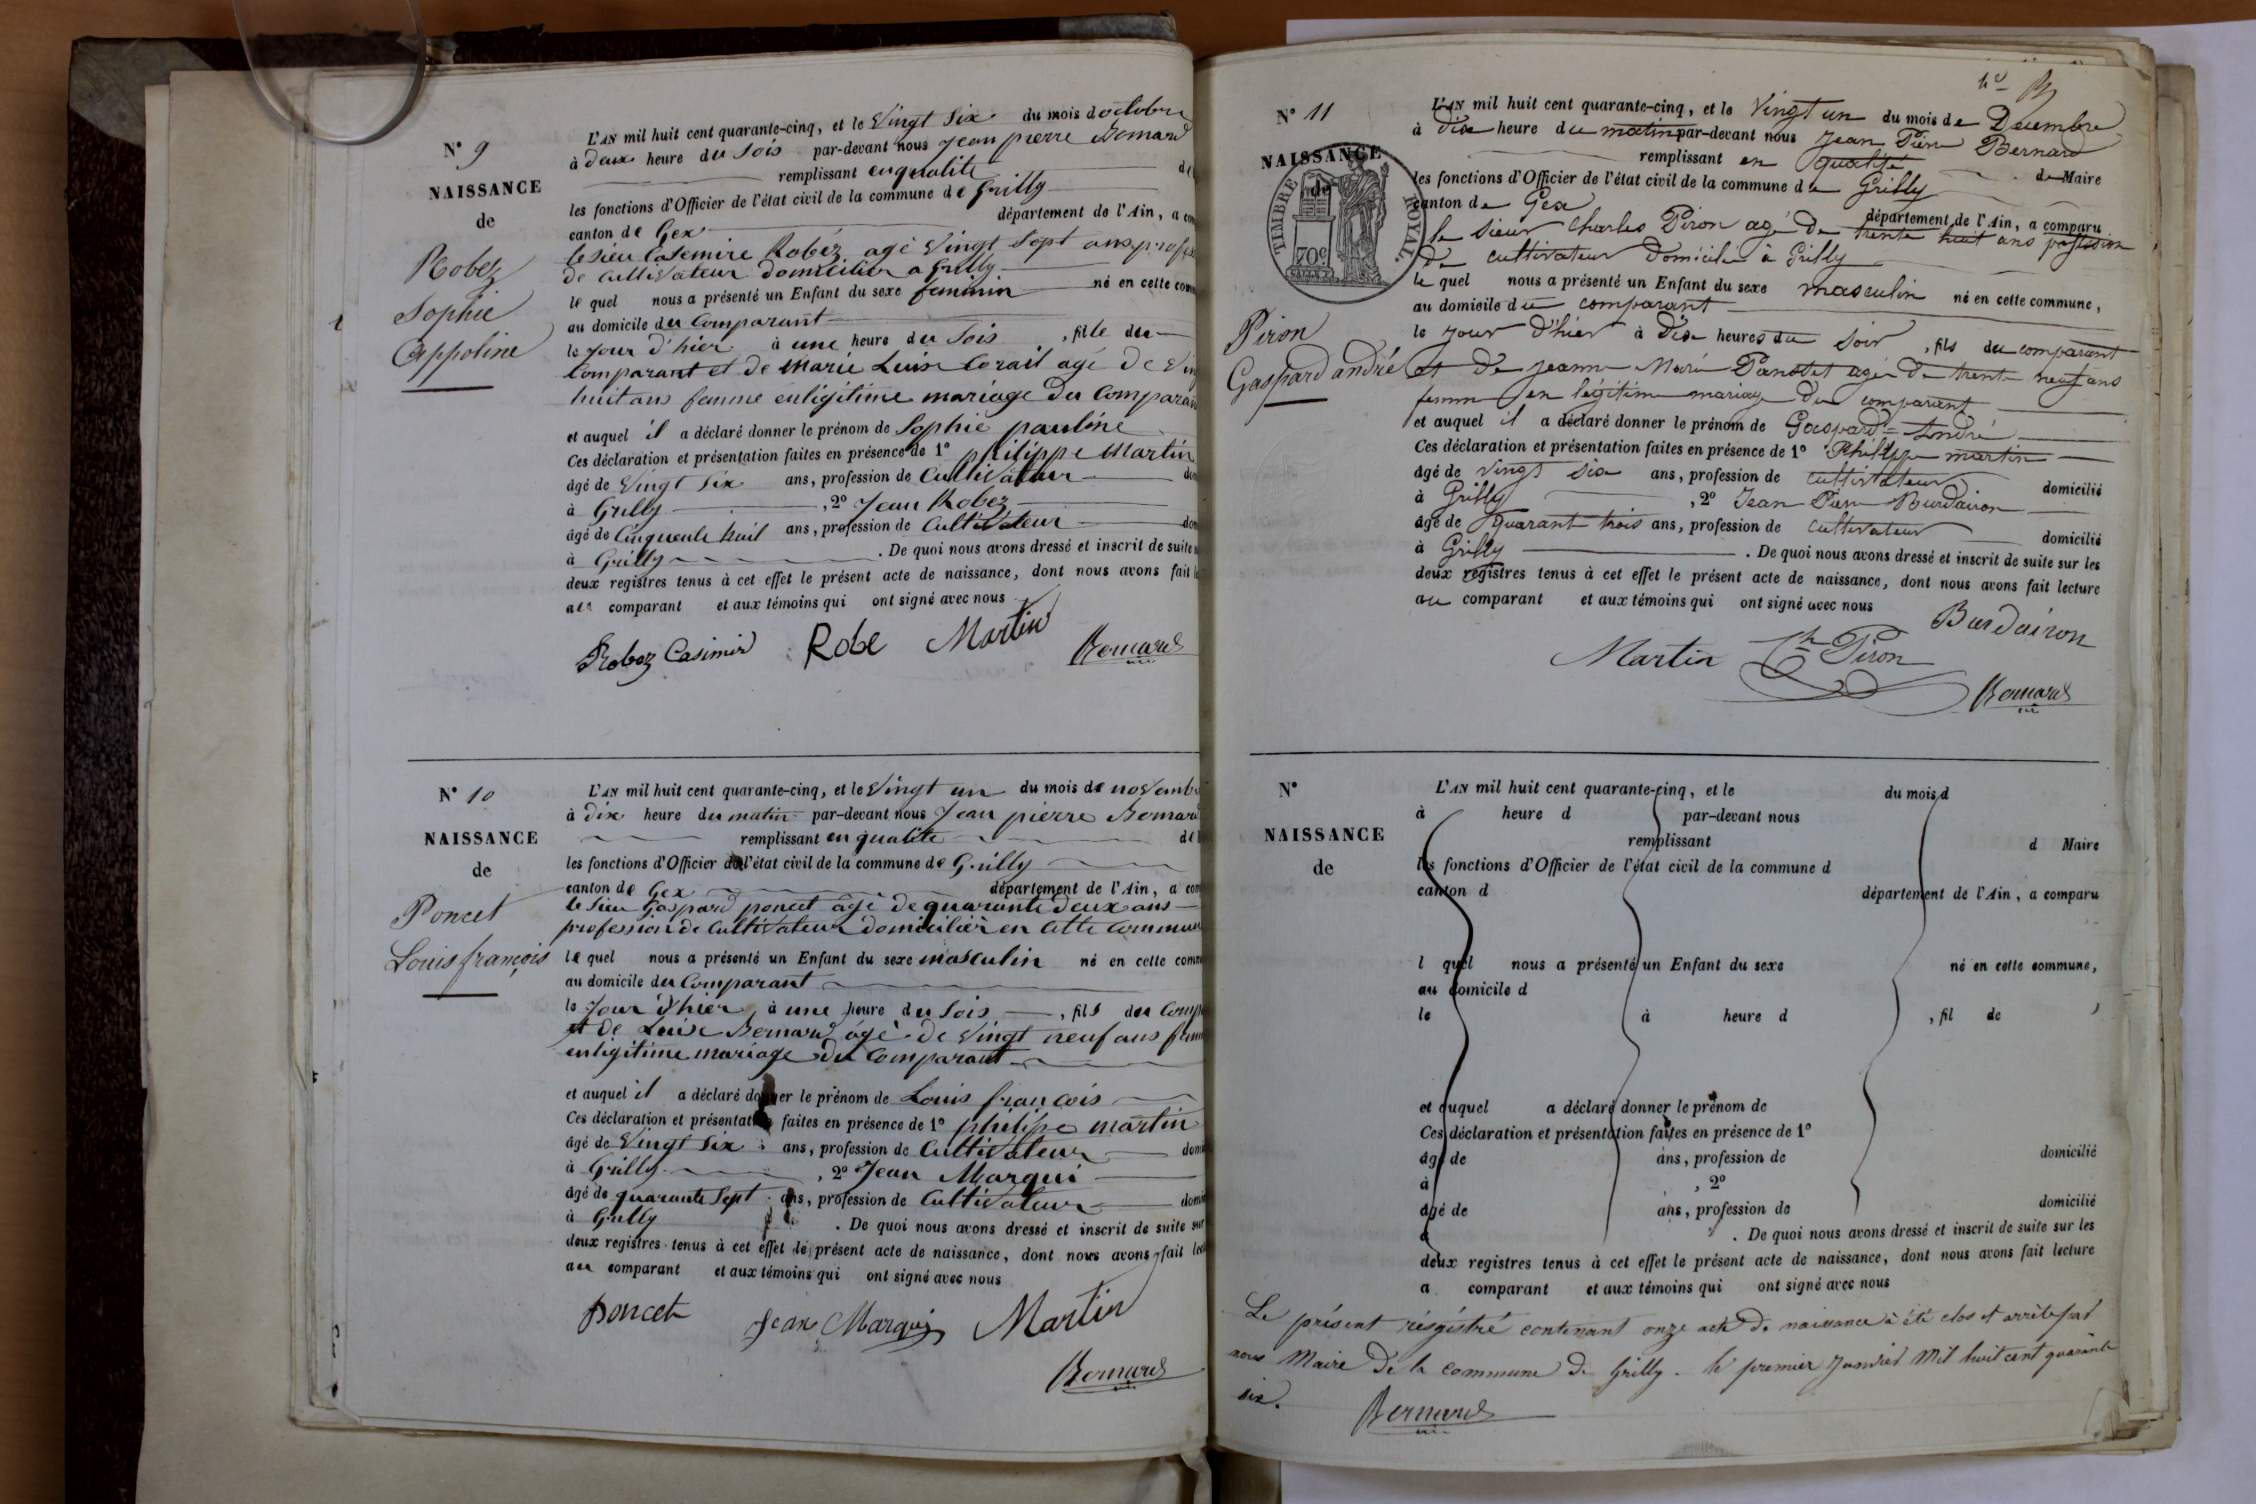 N° 9
NAISSANCE
de
Robez
Sophie
Appoline
L'AN mil huit cent quarante-cinq, et le Vingt Six du mois d'octobre
à deux heure du Soir par-devant nous Jean pierre Bernard
remplissant en qualité de
les fonctions d'Officier de l'état civil de la commune de Grilly
canton de Gex département de l'Ain, a com
le sieu Casemire Robéz agé Vingt Sept ans profes
de Cultivateur domicilier a Grilly
le quel nous a présenté un Enfant du sexe feminin né en cette com
au domicile du Comparant
le Jour d'hier à une heure du Soir , fille du
Comparant et de Marie Luise Corail agé de Vin
huit ans femme en légitime mariage du Comparan
et auquel il a déclaré donner le prénom de Sophie pauline
Ces déclaration et présentation faites en présence de 1° philippe Martin
âgé de Vingt Six ans, profession de Cultivateur dom
à Grilly , 2° Jean Robez
âgé de Cinquente huit ans, profession de Cultivateur dom
à Grilly . De quoi nous avons dressé et inscrit de suite
deux registres tenus à cet effet le présent acte de naissance, dont nous avons fait le
au comparant et aux témoins qui ont signé avec nous
Robez Casimir Robe Martin Bernard
N° 10
NAISSANCE
de
Poncet
Louis françois
L'AN mil huit cent quarante-cinq, et le Vingt un du mois de novembr
à dix heure du matin par-devant nous Jean pierre Bernard
remplissant en qualité de
les fonctions d'Officier de l'état civil de la commune de Grilly
canton de Gex département de l'Ain, a com
le Sieu Gaspard poncet âgé de quarante deux ans
profession de Cultivateur domicilièr en cette commun
le quel nous a présenté un Enfant du sexe masculin né en cette comm
au domicile du Comparant
le Jour d'hier à une heure du Soir , fils du Comp
et de Luise Bernard âgé de Vingt neuf ans fem
en ligitime mariage du Comparant
et auquel il a déclaré donner le prénom de Louis françois
Ces déclaration et présentation faites en présence de 1° philipe martin
âgé de Vingt Six ans, profession de Cultivateur dom
à Grilly , 2° Jean Marqui
âgé de quarante Sept ans, profession de Cultivateur domi
à Grilly . De quoi nous avons dressé et inscrit de suite sur
deux registres tenus à cet effet le présent acte de naissance, dont nous avons fait lec
au comparant et aux témoins qui ont signé avec nous
Poncet Jean Marquis Martin
Bernard
N° 11
NAISSANCE
de
TIMBRE ROYAL
70c
Piron
Gaspard andré
L'AN mil huit cent quarante-cinq, et le Vingt un du mois de Decembre
à dix heure du matin par-devant nous Jean Pierre Bernard
remplissant en qualité de Maire
les fonctions d'Officier de l'état civil de la commune de Grilly
canton de Gex département de l'Ain, a comparu
le sieur Charles Piron agé de trente huit ans profession
de cultivateur Domicile à Grilly
le quel nous a présenté un Enfant du sexe masculin né en cette commune,
au domicile du comparant
le jour d'hier à Dix heures du Soir , fils du comparant
et de Jeanne Marie Panotet agée de trente neuf ans
femme en légitime mariage du comparant
et auquel il a déclaré donner le prénom de Gaspard = André
Ces déclaration et présentation faites en présence de 1° Philippe martin
âgé de vingt six ans, profession de cultivateur domicilié
à Grilly , 2° Jean Pierre Burdairon
âgé de quarant trois ans, profession de cultivateur domicilié
à Grilly . De quoi nous avons dressé et inscrit de suite sur les
deux registres tenus à cet effet le présent acte de naissance, dont nous avons fait lecture
au comparant et aux témoins qui ont signé avec nous
Burdairon
Martin Ch Piron
Bernard
N°
NAISSANCE
de
L'AN mil huit cent quarante-cinq, et le du mois d
à heure d par-devant nous
remplissant d Maire
les fonctions d'Officier de l'état civil de la commune d
canton d département de l'Ain, a comparu
l quel nous a présenté un Enfant du sexe né en cette commune,
au domicile d
le à heure d , fil de
et auquel a déclaré donner le prénom de
Ces déclaration et présentation faites en présence de 1°
âgé de ans, profession de domicilié
à , 2°
âgé de ans, profession de domicilié
à . De quoi nous avons dressé et inscrit de suite sur les
deux registres tenus à cet effet le présent acte de naissance, dont nous avons fait lecture
a comparant et aux témoins qui ont signé avec nous
Le présent régistré contenant onze acte de naissance à été clos et arrêté par
nous Maire de la commune de Grilly . le premier Janvier Mil huit cent quarante
six.
Bernard